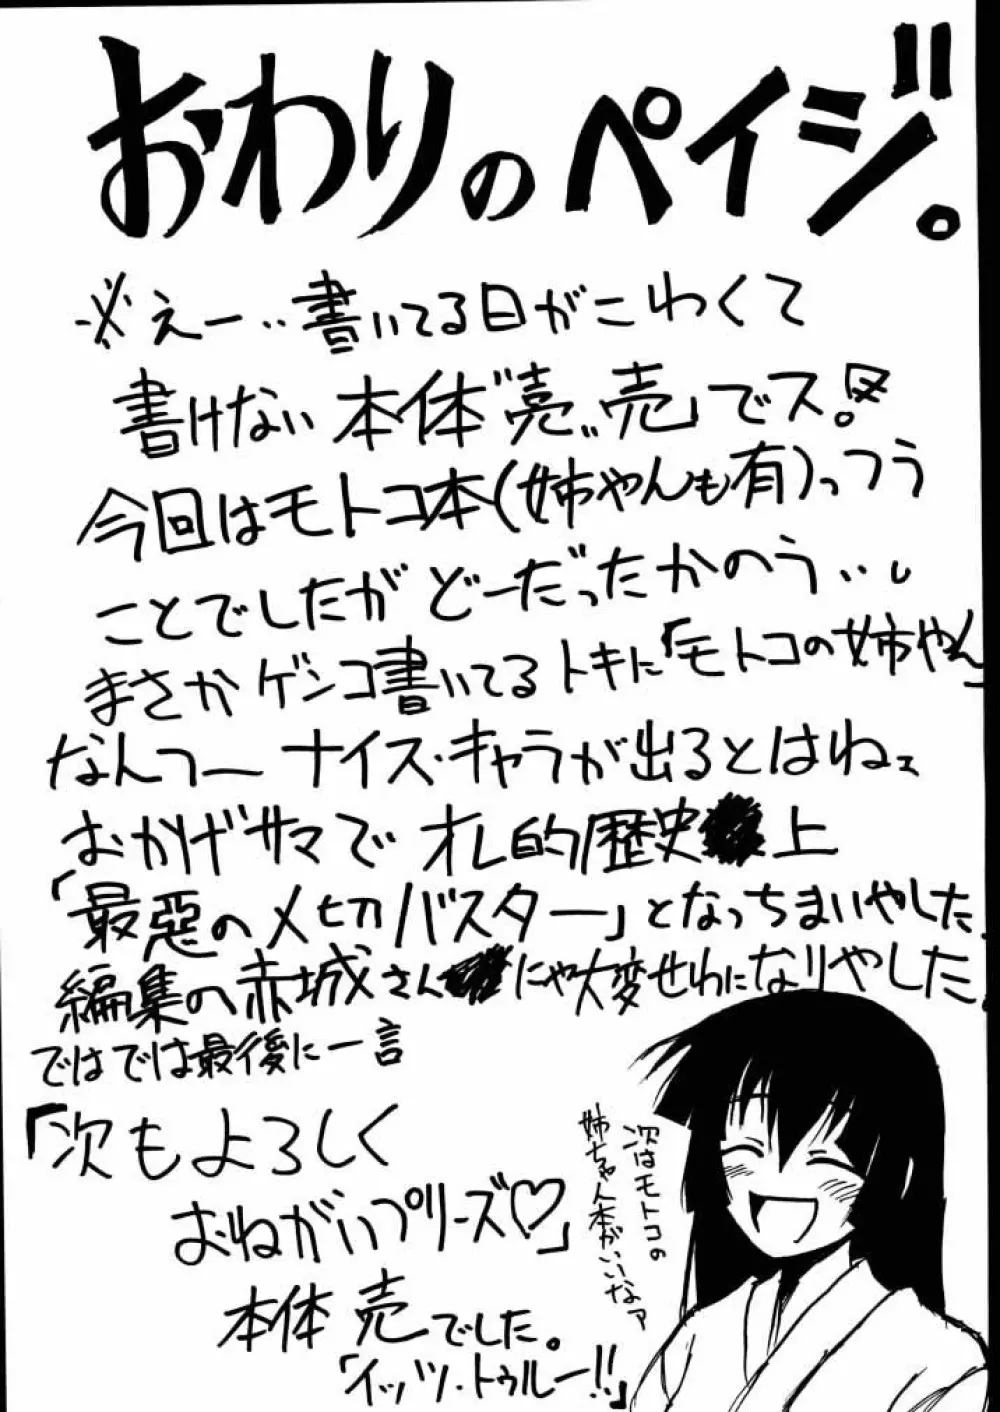 おわりのペイジ。
※えー‥書いてる日がこわくて
書けない本体"売"売」でス。
今回はモトコ本(姉やんも有)っつう
ことでしたがどーだったかのう‥し
まさかゲンコ書いてるトキに「モトコの姉やん」
なんつーナイス・キャラが出るとはねェ
おかげサマでオレ的歴史上
「最惡のメ切バスター」となっちまいやした。
編集の赤城さんにゃ大変せわになりやした。
ではでは最後に一言
「次もよろしく
おねがいプリーズ♡」
本体 売でした。
「イッツ・トゥルー!!」
次はモトコの
姉ちゃん本がいいなァ